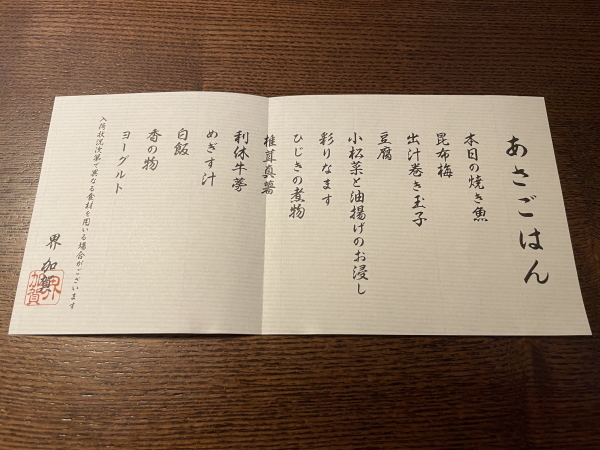 あさごはん
本日の焼き魚
昆布梅
出汁巻き玉子
豆腐
小松菜と油揚げのお浸し
彩りなます
ひじきの煮物
椎茸真薯
利休牛蒡
めぎす汁
白飯
香の物
ヨーグルト
入荷状況次第で異なる食材を用いる場合がございます
界 加賀
界加賀